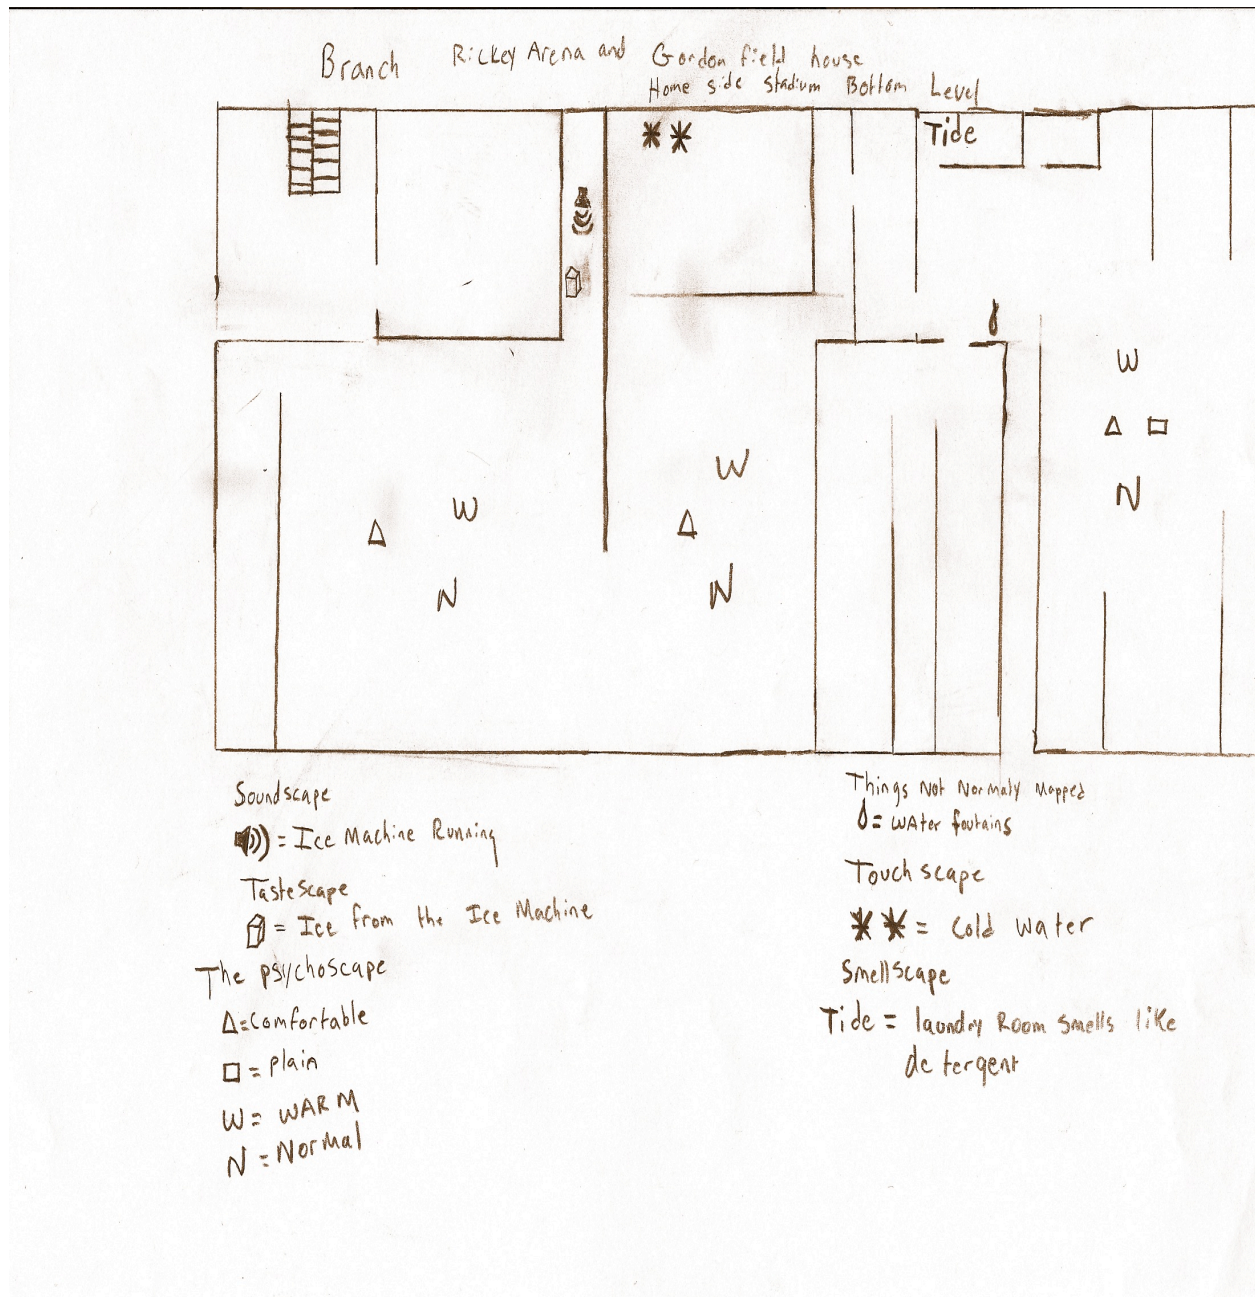 Branch Rickey Arena and Gordon field house
Home side stadium Bottom Level
Tide
W
W
N
W
N
N
Soundscape
= Ice Machine Running
Tastescape
= Ice from the Ice Machine
The psychoscape
Δ=Comfortable
□ = plain
W = WARM
N = Normal
Things Not Normaly Mapped
= WAter foutains
Touch scape
✱✱ = Cold water
Smellscape
Tide = laundry Room smells like
detergent